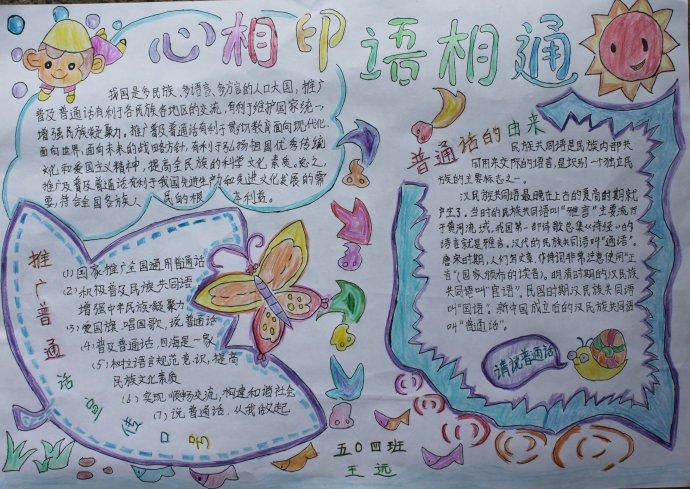 心相印 语相通
我国是多民族、多语言、多方言的人口大国，推广
普及普通话有利于各民族各地区的交流，有利于维护国家统一，
增强民族凝聚力。推广普及普通话有利于贯彻教育面向现代化，
面向世界，面向未来的战略方针，有利于弘扬祖国优秀传统
文化和爱国主义精神，提高全民族的科学文化素质。总之，
推广及普及普通话有利于我国先进生产力和先进文化发展的需
要，符合全国各族人民的根本利益。
推广普通话宣传口号
(1)国家推广全国通用普通话
(2)积极普及民族共同语
增强中华民族凝聚力
(3)爱国旗，唱国歌，说普通话
(4)普及普通话，四海是一家
(5)树立语言规范意识，提高
民族文化素质
(6)实现顺畅交流，构建和谐社会
(7)说普通话，从我做起
普通话的由来
民族共同语是民族内部共
同用来交际的语言，是识别一个独立民
族的主要标志之一。
汉民族共同语最晚在上古的夏商时期就
产生了。当时的民族共同语叫“雅言”主要流行
于黄河流域，我国第一部诗歌总集《诗经》的
语言就是雅言。汉代的民族共同语叫“通语”。
唐宋时期，人们写文章、作诗词非常注意使用“正
音”(国家颁布的读音)。明清时期的汉民族
共同语叫“官话”。民国时期汉民族共同语叫
“国语”。新中国成立后的汉民族共同语
叫“普通话”。
请说普通话
五〇四班
王远